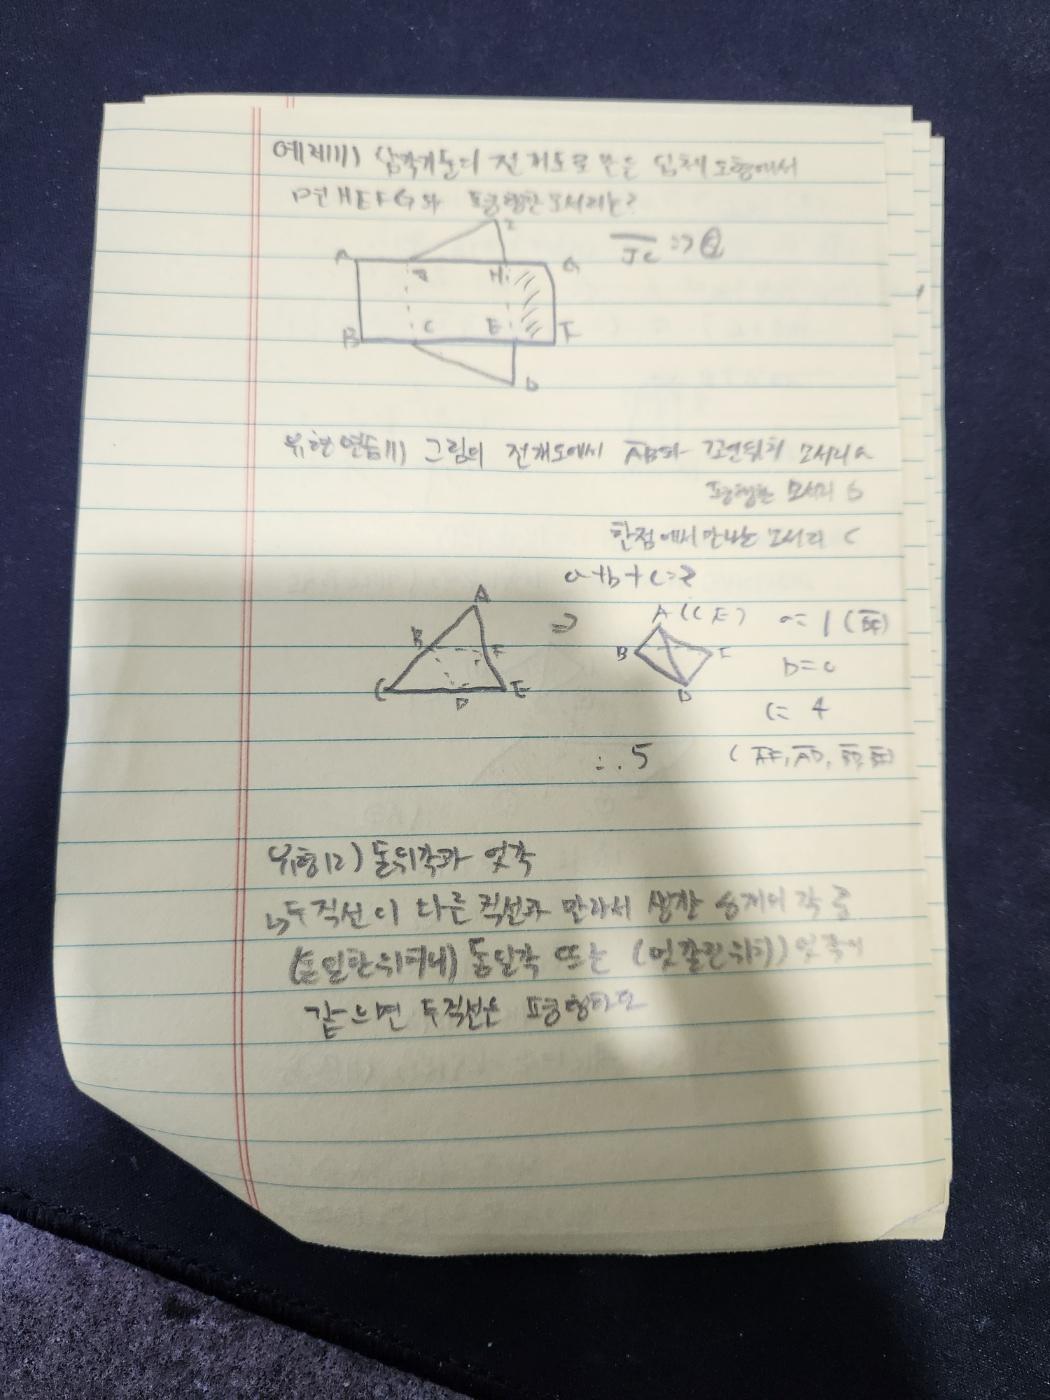 예제11) 삼각기둥의 전개도로 만든 입체도형에서
면 HEFG와 평행한 모서리는?
I
JC => ②
A J H G
B C E F
D
유현연습11) 그림의 전개도에서 AB와 꼬인위치 모서리 a
평행한 모서리 b
한점에서 만나는 모서리 c
a+b+c=?
A
=>
A(C,E)
a= 1 (DF)
B F
B F
b=0
C D E
D
c= 4
∴ 5
(AF, AD, BD, BF)
유형12) 동위각과 엇각
↳ 두직선이 다른 직선과 만나서 생긴 8개의 각 중
(동일한위치) 동위각 또는 (엇갈린위치) 엇각이
같으면 두직선은 평행하다